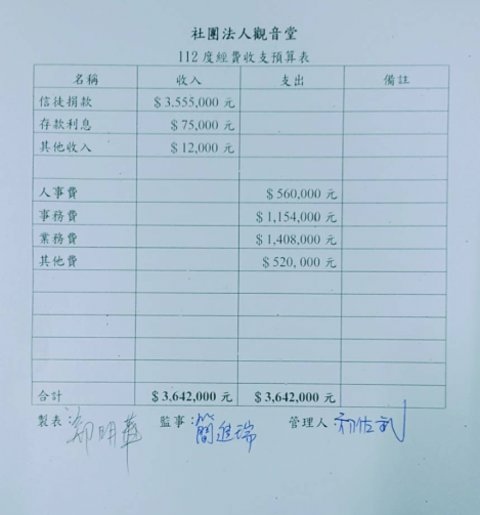 社團法人觀音堂
112 度經費收支預算表
名稱 收入 支出 備註
信徒捐款 $3.555,000 元
存款利息 $75,000 元
其他收入 $12,000 元
人事費 $560,000 元
事務費 $1,154,000 元
業務費 $1,408,000 元
其他費 $520,000 元
合計 $3,642,000 元 $3,642,000 元
製表: 鄭明華 監事:簡進瑞 管理人: